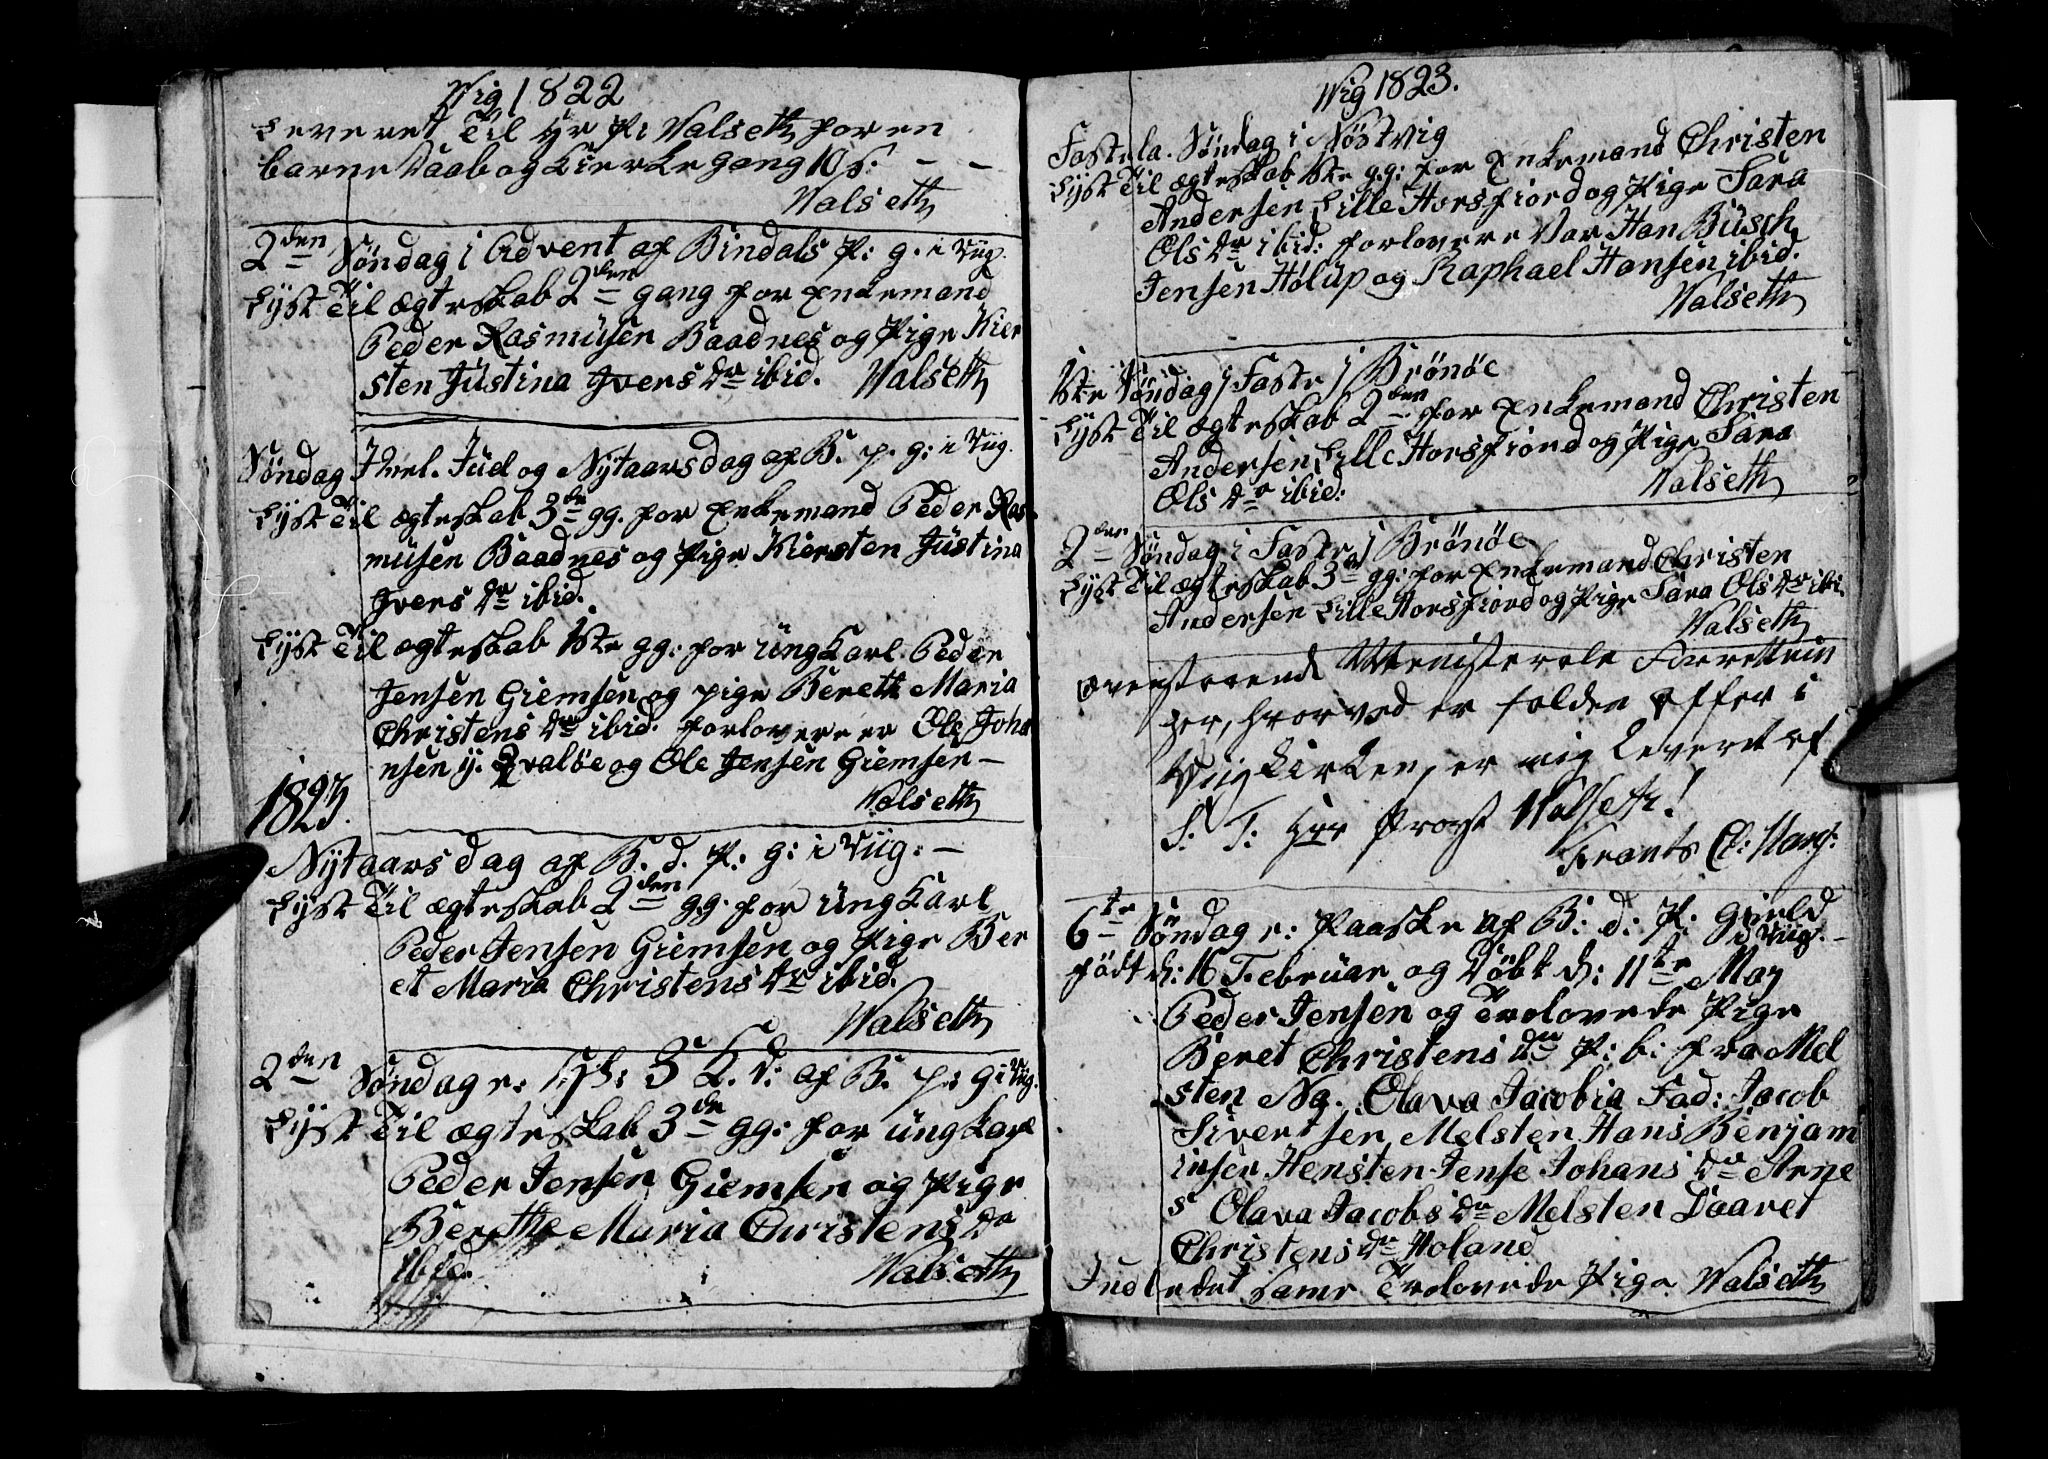 Wig 1822
Leveret Til Hr P: Walseth for en
barne Daab og Kierke gang 10 s. - -
Walseth
2den Søndag i Advent af Bindals P: g. i Viig.
Lyst Til ægteskab 2den gang for Enkemand
Peder Rasmusen Baadnes og Pige Kier
sten Justina Ivers dr ibid. Walseth
Søndag Imel. Juel og Nytaarsdag af B. p. g: i Viig.
Lyst Til ægteskab 3de gg. for Enkemand Peder Ras
musen Baadnes og Pige Kiersten Justina
Ivers dr ibid.
Lyst Til ægteskab 1ste gg: for ungKarl Peder
Jensen Giemsen og pige Bereth Maria
Christens dr ibid. forlovere er Ole Joha
nsen y. Qvaløe og Ole Jensen Giemsen -
Walseth
1823.
Nytaars dag af B. d. P: g: i Viig: -
Lyst Til ægteskab 2den gg. for ungKarl
Peder Jensen Giemsen og Pige Ber
et Maria Christens dr ibid.
Walseth
2den Søndag e: H: 3 K. d: af B. p: g i Viig.
Lyst Til ægteskab 3de gg: for ungkarl
Peder Jensen Giemsen og Pige
Berethe Maria Christens dr
ibid. Walseth
Wig 1823.
Fastela. Søndag i Nøstvig
Lyst Til ægteskab 1ste gg: for Enkemand Christen
Andersen Lille Horsfiord og Pige Sara
Ols dr ibid: forlovere Var Han Busch
Jensen Hølup og Raphael Hansen ibid.
Walseth
1ste Søndag i Faste i Brønøe
Lyst Til ægteskab 2den for Enkemand Christen
Andersen Lille Horsfiord og Pige Sara
Ols dr ibid: Walseth
2den Søndag i Faste i Brønøe
Lyst Til ægteskab 3de gg: for Enkemand Christen
Andersen Lille Horsfiord og Pige Sara Ols dr ibi.
Walseth
Ovenstaaende Ministerele Forrettnin
ger, hvorved er falden Offer i
Viig Kirken, er mig leveret af
S. T. Hrr Provst Walseth!
Krants Cl: Harj:
6te Søndag e: Paaske af B: d: P: Gield
i Viig. -
født d: 16 Februar og Døbt d: 11te May
Peder Jensen og Trolovede Pige
Beret Christens dr P: b: fra Mel
sten Na. Olava Jacobia Fad: Jacob
Sivertsen Melsten Hans Benjam
insen Hensten Jense Johans dr Arne
s Olava Jacobs dr Melsten Daaret
Christens dr Holand
Indledet Same Trolovede Pige Walseth